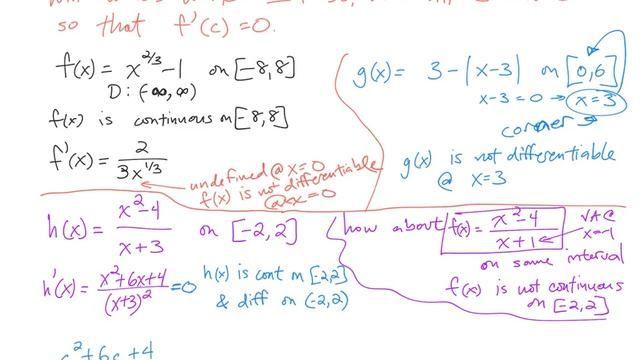 so that f'(c) = 0.
f(x) = x^(2/3) - 1 on [-8,8]
D: (-∞,∞)
f(x) is continuous on [-8,8]
f'(x) = 2 / 3x^(1/3)
undefined @ x=0
f(x) is not differentiable
@ x=0
g(x) = 3 - |x-3| on [0,6]
x-3=0 → x=3
corner
g(x) is not differentiable
@ x=3
h(x) = x²-4 / x+3 on [-2,2]
h'(x) = x²+6x+4 / (x+3)² = 0
h(x) is cont on [-2,2]
& diff on (-2,2)
how about f(x) = x²-4 / x+1
VA @
x=-1
on same interval
f(x) is not continuous
on [-2,2]